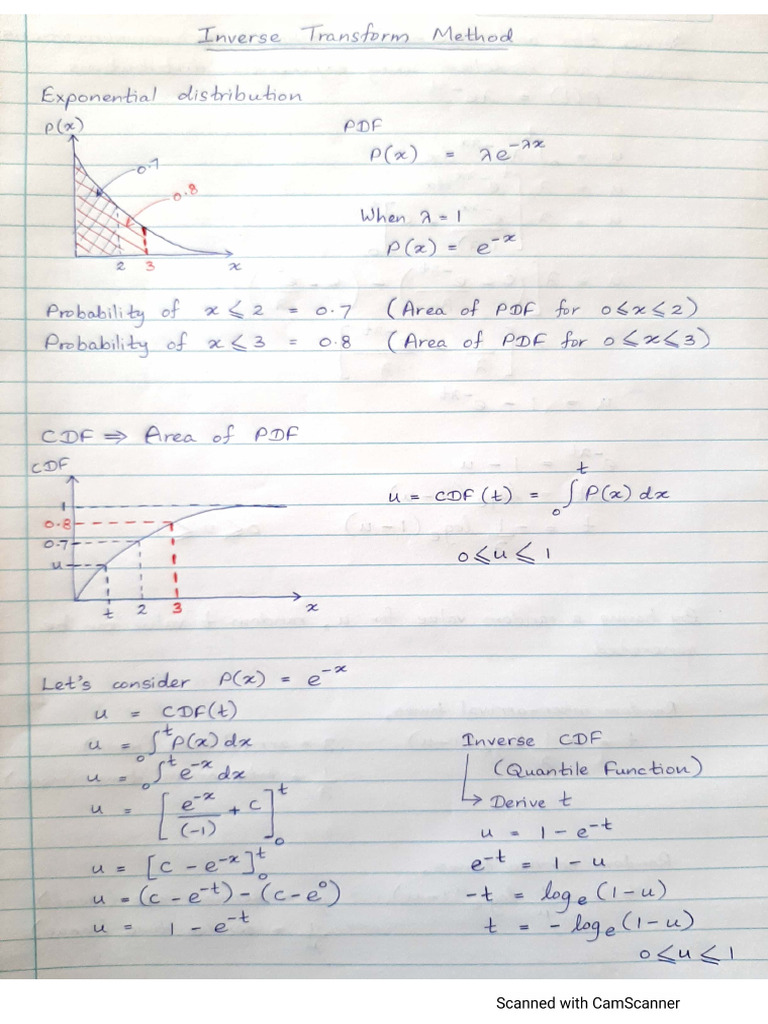 Inverse Transform Method
Exponential distribution
P(x)
0.7
0.8
2 3 x
PDF
P(x) = λe^-λx
When λ = 1
P(x) = e^-x
Probability of x ⩽ 2 = 0.7 (Area of PDF for 0⩽x⩽2)
Probability of x ⩽ 3 = 0.8 (Area of PDF for 0⩽x⩽3)
CDF ⇒ Area of PDF
CDF
1
0.8
0.7
u
t 2 3 x
u = CDF(t) = ∫₀ᵗ P(x) dx
0⩽u⩽1
Let's consider P(x) = e^-x
u = CDF(t)
u = ₀∫ᵗ P(x) dx
u = ₀∫ᵗ e^-x dx
u = [e^-x/(-1) + c]₀ᵗ
u = [c - e^-x]₀ᵗ
u = (c - e^-t) - (c - e^0)
u = 1 - e^-t
Inverse CDF
(Quantile Function)
↳ Derive t
u = 1 - e^-t
e^-t = 1 - u
-t = log_e (1-u)
t = - log_e (1-u)
0⩽u⩽1
Scanned with CamScanner